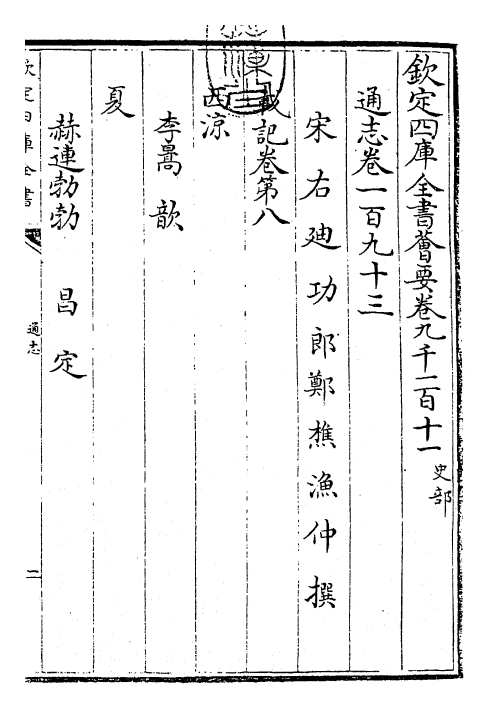 欽定四庫全書薈要卷九千二百十一 史部
通志卷一百九十三
宋右迪功郎鄭樵漁仲撰
載記卷第八
西涼
李暠 歆
夏
赫連勃勃 昌 定
欽定四庫全書
通志
二